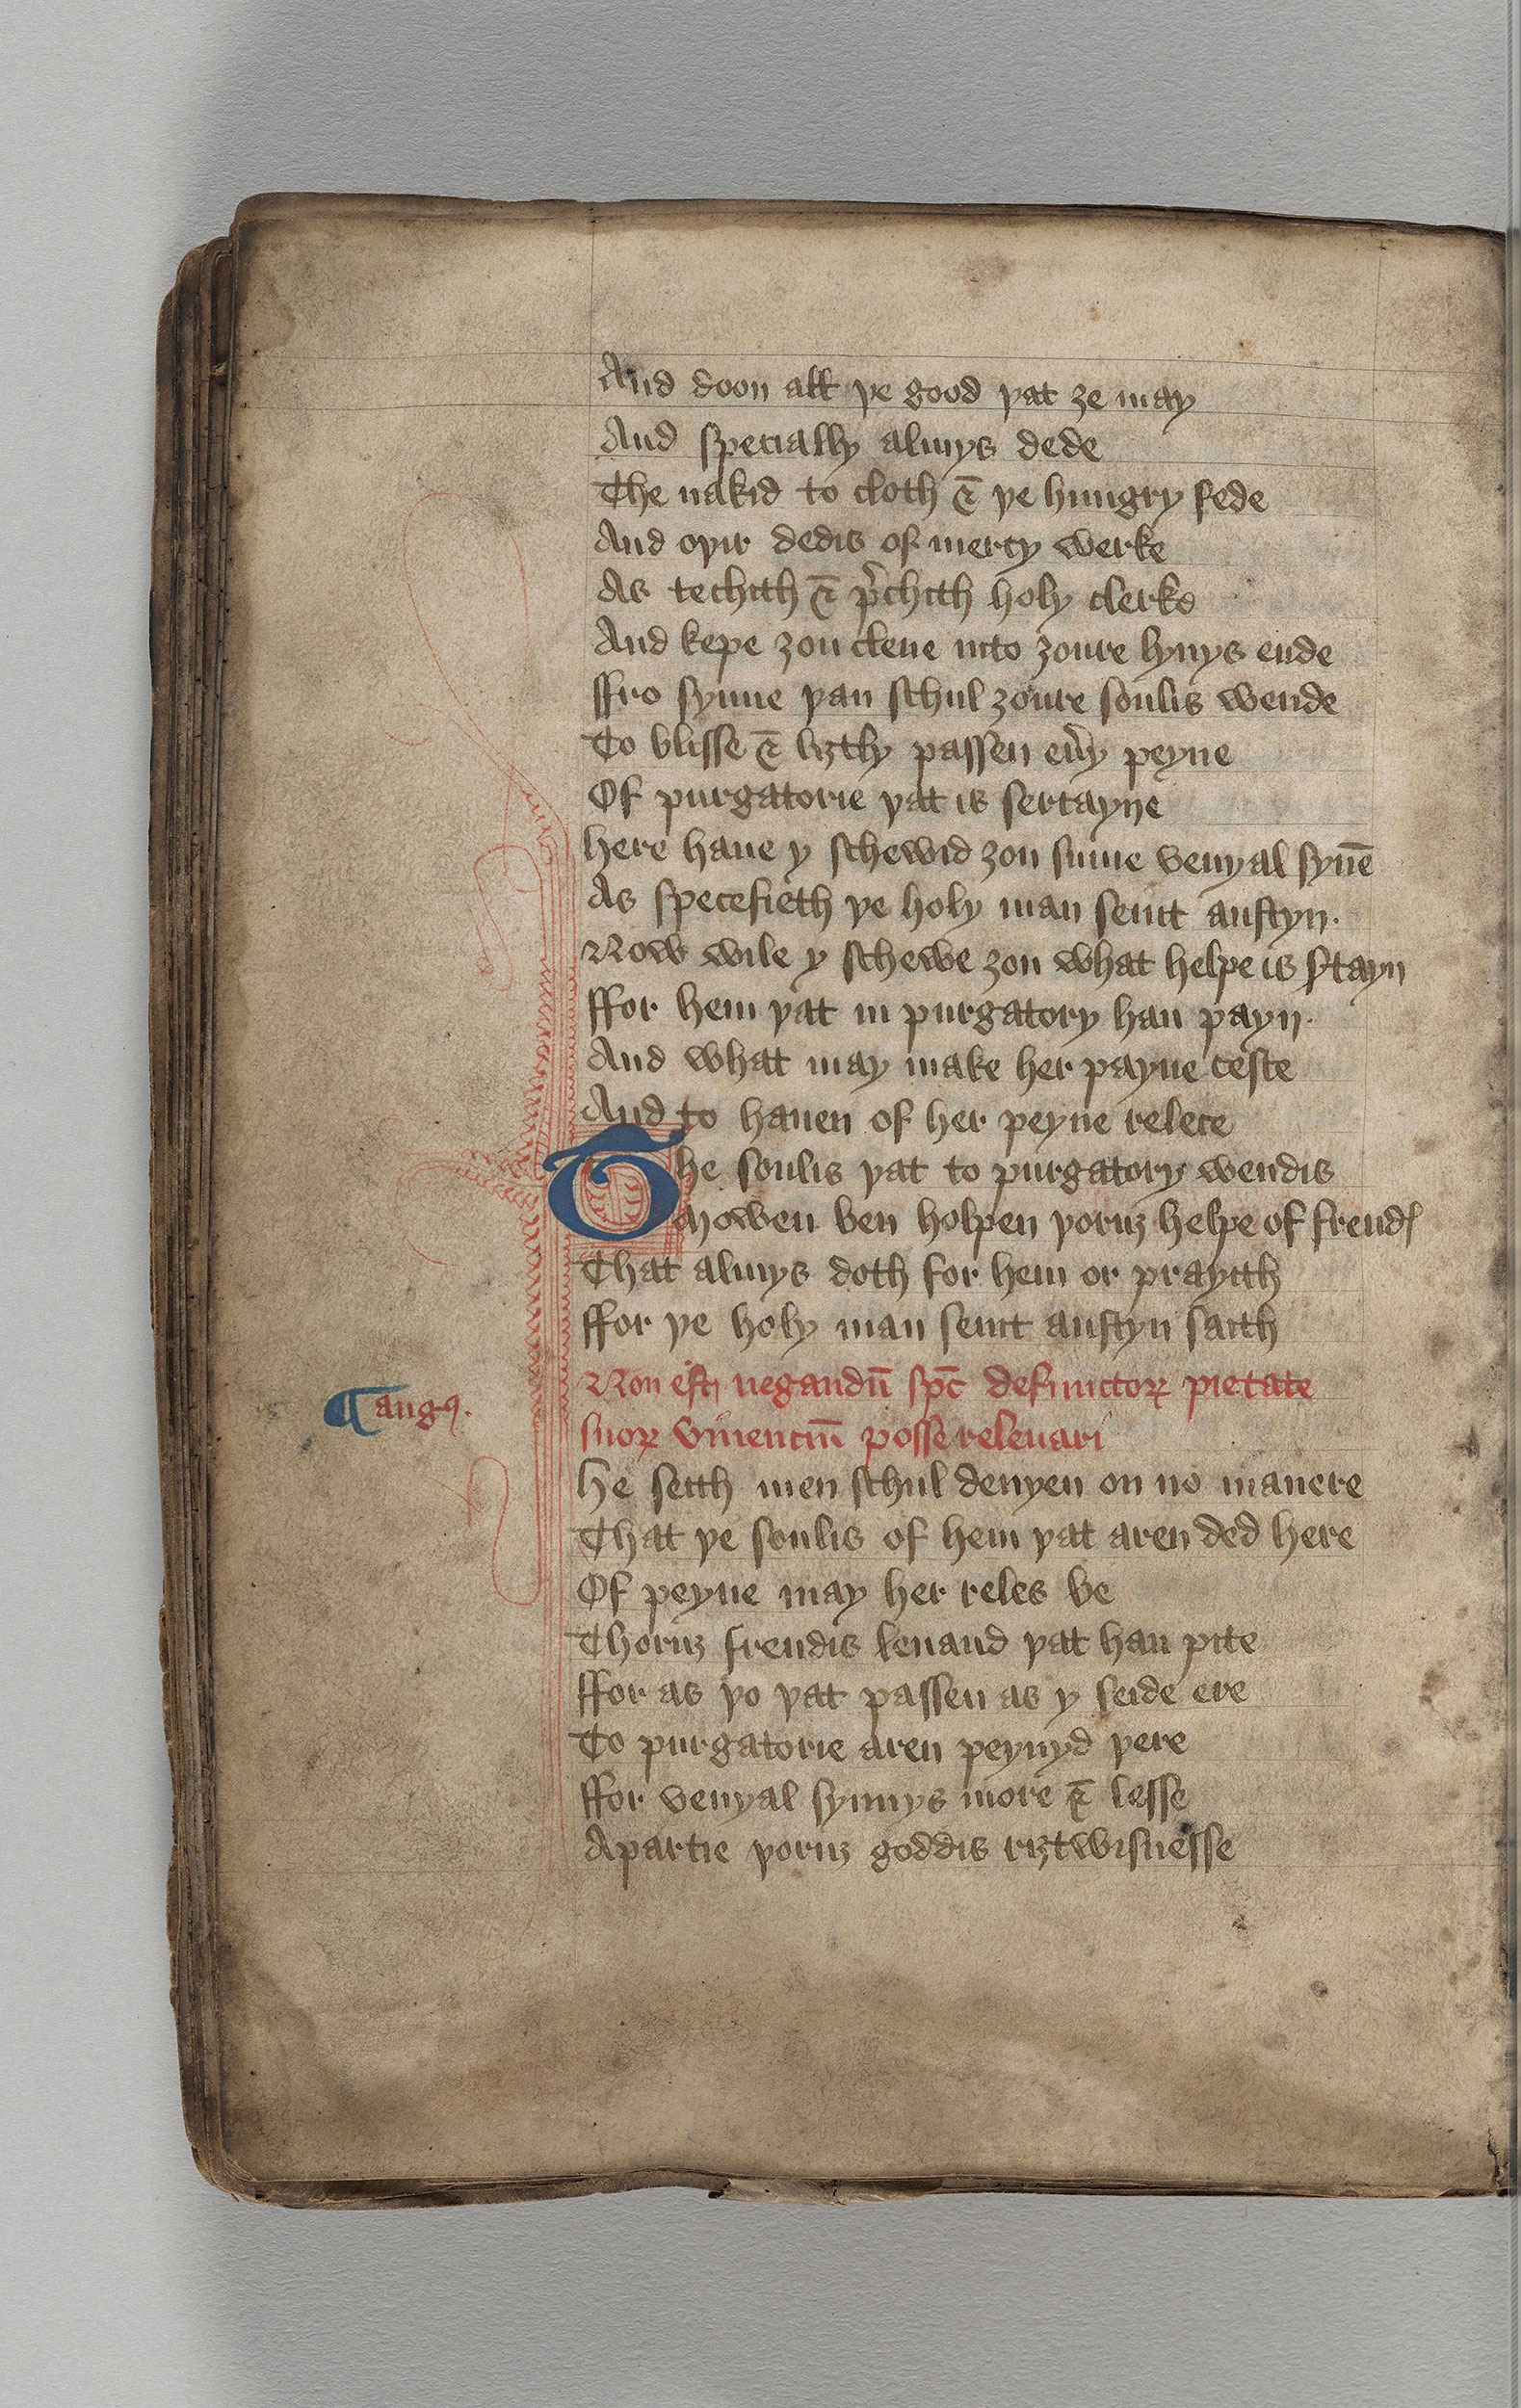 And doon all þe good þat ȝe may
And specially almys dede
The nakid to cloth & þe hungry fede
And oþir dedis of mercy werke
As techith & p̲̾chith holy clerke
And kepe ȝou clene into ȝoure lyuys ende
ffro synne þan schul ȝoure soulis wende
To blisse & liȝtly passen eu̾y peyne
Of purgatorie þat is sertayne
here haue y schewid ȝou sume venyal synē
As specefieth þe holy man seint austyn.
Now wile y schewe ȝou what helpe is s̾tayn
ffor hem þat in purgatory han payn.
And what may make her payne ceste
And to hauen of her peyne relece
The soulis þat to purgatory wendis
Mowen ben holpen þoruȝ helpe of frendꝭ
That almys doth for hem or prayith
ffor þe holy man seint austyn saith
Non est negandū sp̄c defunctoꝝ pietate
¶ augꝰ.
suoꝝ viuenciū posse releuari
He seith men schul denyen on no manere
That þe soulis of hem þat aren ded here
Of peyne may her reles be
Thoruȝ frendis leuand þat han pite
ffor as þo þat passen as y seide ere
To purgatorie aren peynyd þere
ffor venyal synnys more & lesse
Apartie þoruȝ goddis riȝtwisnesse